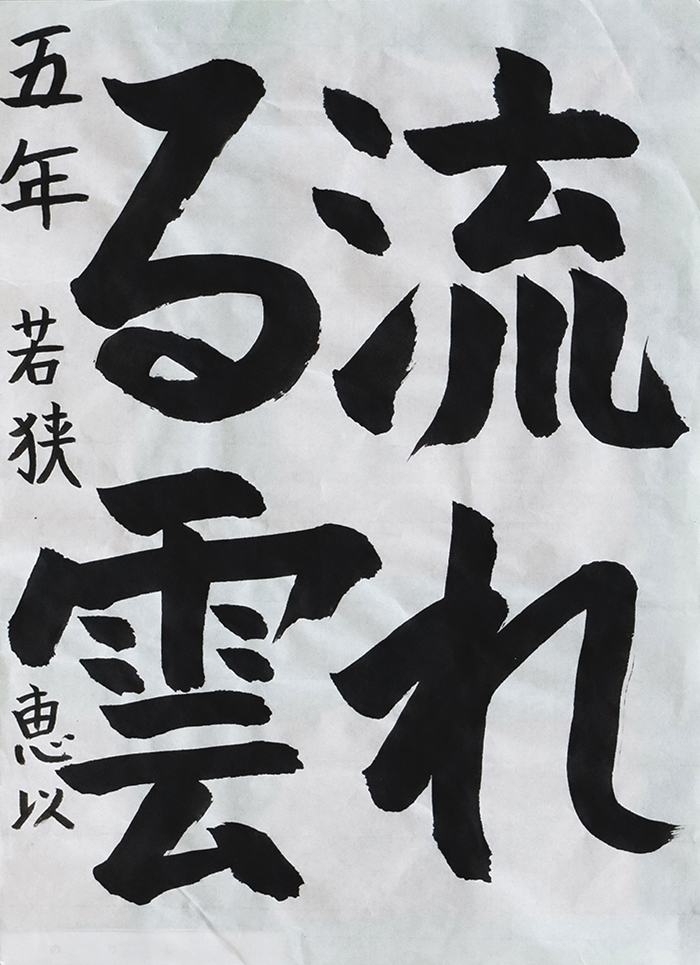 流れ
る雲
五年 若狭 恵以